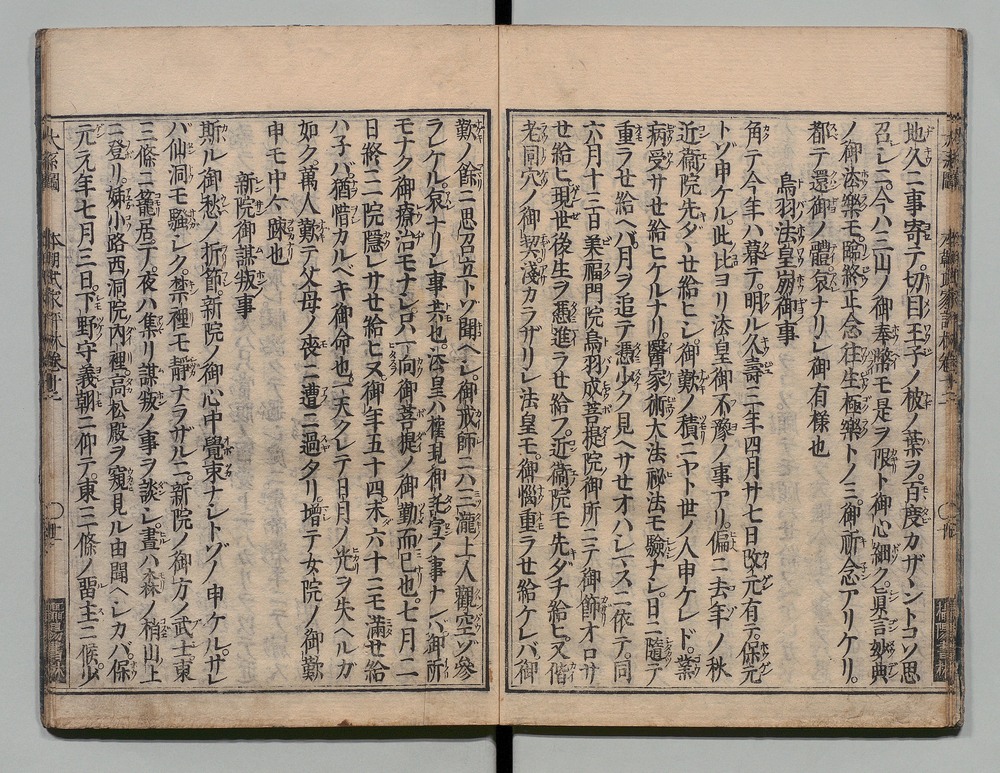 地久ニ事寄テ切目王子ノ梛ノ葉ヲ百度カザヽントコソ思
召レシニ今ハ三山ノ御奉幣モ是ヲ限ト御心細ク眞言妙典
ノ御法樂モ臨終正念往生極樂トノミ御祈念アリケリ
都テ還御ノ體哀ナリシ御有樣也
鳥羽法皇崩御事
角テ今年ハ暮テ明ル久壽三年四月廿七日改元有テ保元
トゾ申ケル此比ヨリ法皇御不豫ノ事アリ偏ニ去年ノ秋
近衞院先ダヽせ給ヒシ御歎ノ積ニヤト世ノ人申ケレド業
病受サせ給ヒケルナリ醫家術大法祕法モ驗ナシ日ニ隨テ
重ラせ給ヘバ月ヲ追テ憑少ク見ヘサせオハシマス二依テ同
六月十二日美福門院鳥羽成菩提院御所ニテ御飾オロサ
せ給ヒ現世後生ヲ憑進ラせ給フ近衞院モ先ダチ給ヒ又偕
老同穴ノ御契淺カラザリシ法皇モ御惱重ラせ給ケレバ御
歎ノ餘ニ思召立トゾ聞ヘシ御戒師ニハ三瀧上人觀空ゾ參
ラレケル哀ナリシ事共也法皇ハ權現御託宣ノ事ナレバ御所
モナク御療治モナシ只一向御菩提ノ御勤而已也七月二
日終ニ一院隱レサせ給ヒヌ御年五十四未六十ニモ滿せ給
ハ子バ猶惜カルベキ御命也天クレテ日月ノ光ヲ失ヘルガ
如ク萬人歎テ父母ノ喪ニ遭ニ過タリ增テ女院ノ御歎
申モ中々疎也
新院御謀叛事
斯ル御愁ノ折節新院ノ御心中覺束ナシトゾノ申ケルサレ
バ仙洞モ騷シク禁裡モ靜ナラザルニ新院ノ御方ノ武士東
三條ニ籠居テ夜ハ集リ謀叛ノ事ヲ談シ晝ハ森ノ梢山上
ニ登リ姊小路西洞院內裡高松殿ヲ窺見ル由聞ヘシカバ保
元元年七月三日下野守義朝ニ仰テ東三條ノ留主ニ候少
本朝武家評林卷